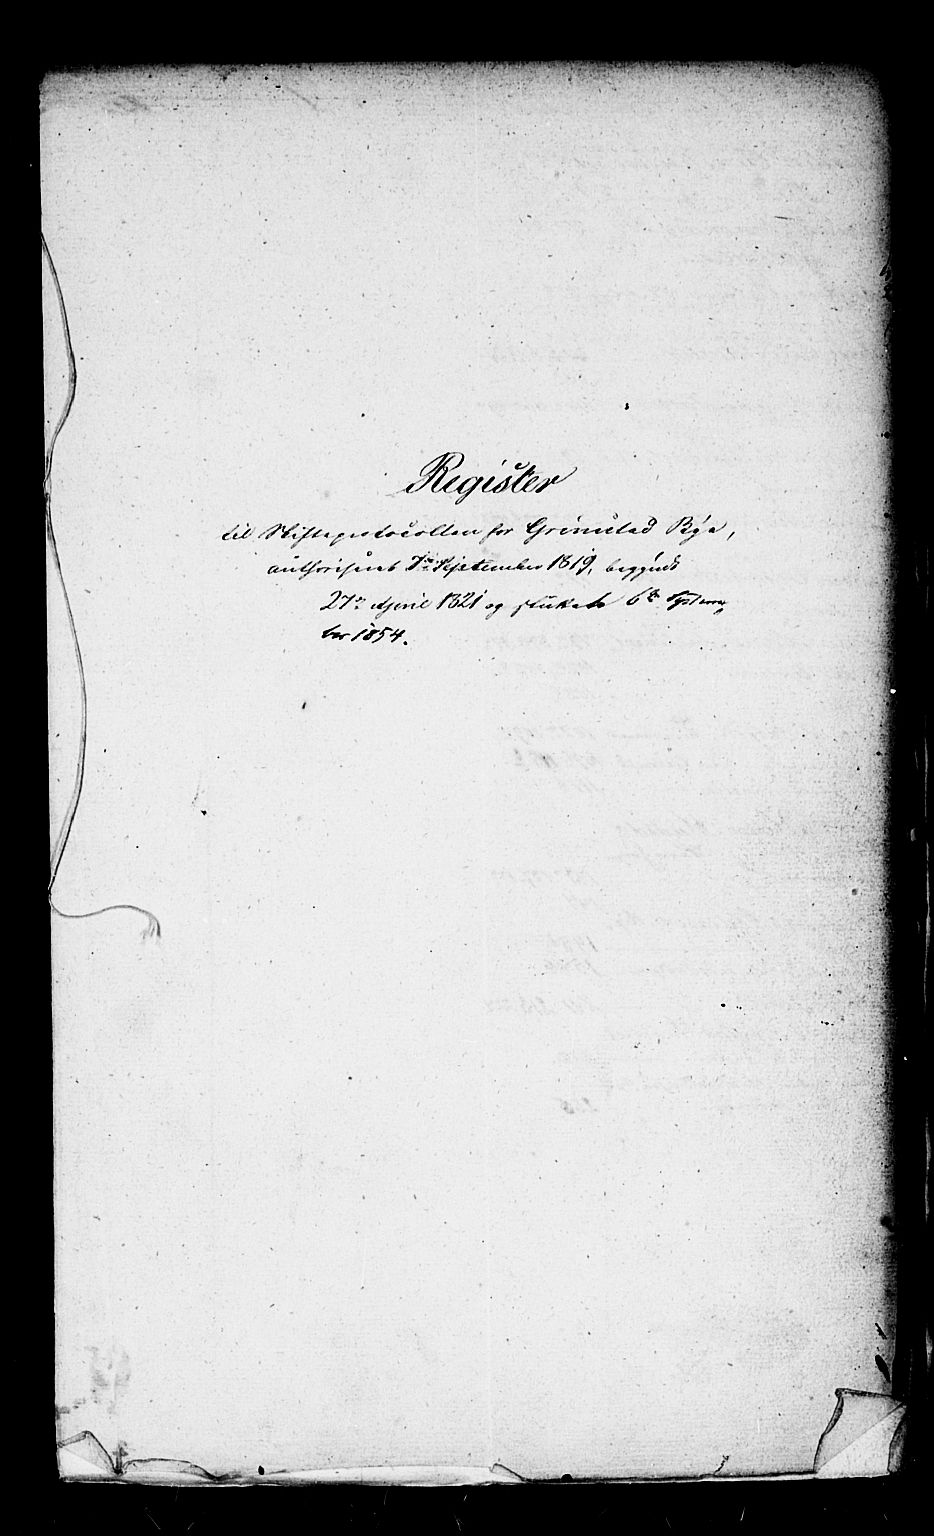 Register
til Skifteprotocollen for Grimstad Bye,
authoriseret 7de September 1819, begyndt
27de April 1821 og sluttet 6te Septem-
ber 1854.